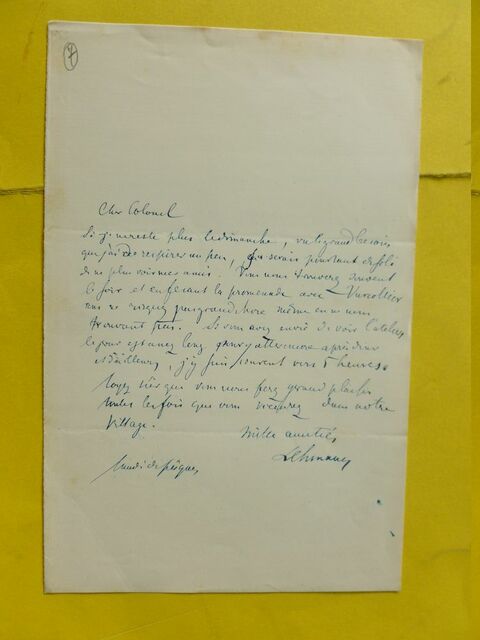 7
Cher Colonel
Si je ne reste plus le dimanche, vu le grand besoin
que j'ai de respirer un peu, je serais pourtant désolé
de ne plus voir mes amis. Vous nous trouverez souvent
le soir et en faisant la promenade avec
vous ne risquez pas grand chose même en ne nous
trouvant pas. Si vous avez envie de voir l'atelier
le jour est assez long pour y atteindre après dîner
et d'ailleurs, j'y suis souvent vers 5 heures
Soyez sûr que vous nous ferez grand plaisir
toutes les fois que vous viendrez dans notre
village.
Mille amitiés
Lehmann
lundi de Pâques